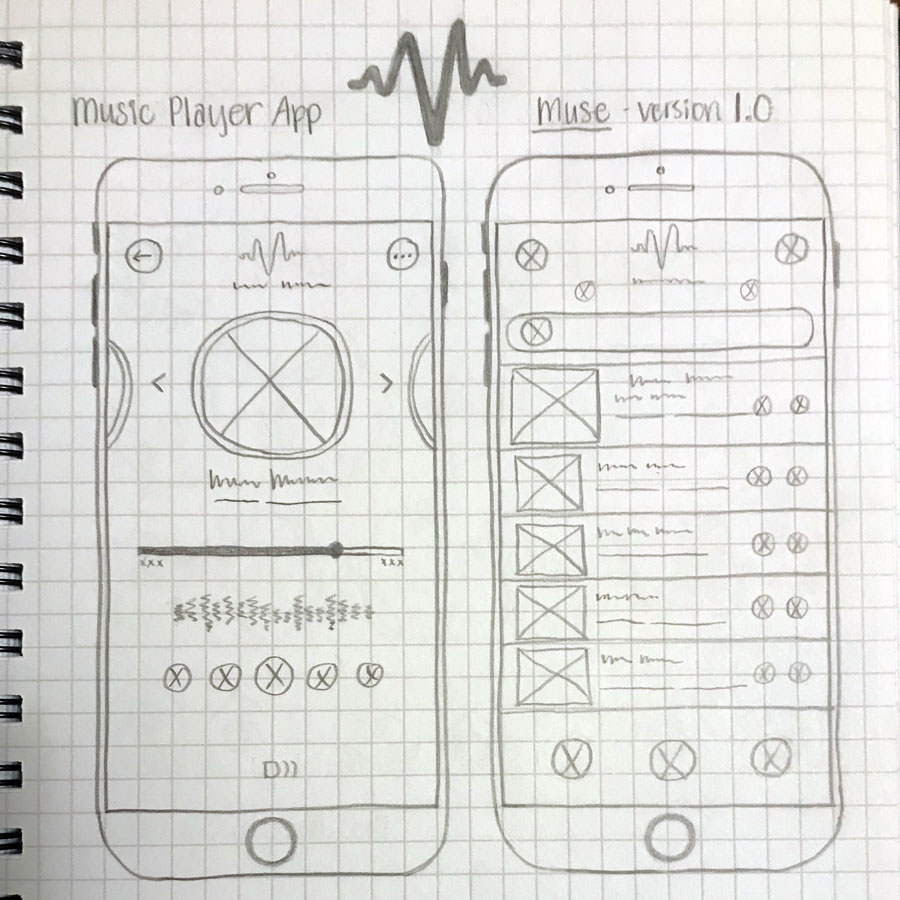 Music Player App
Muse - version 1.0
xxx
xxx